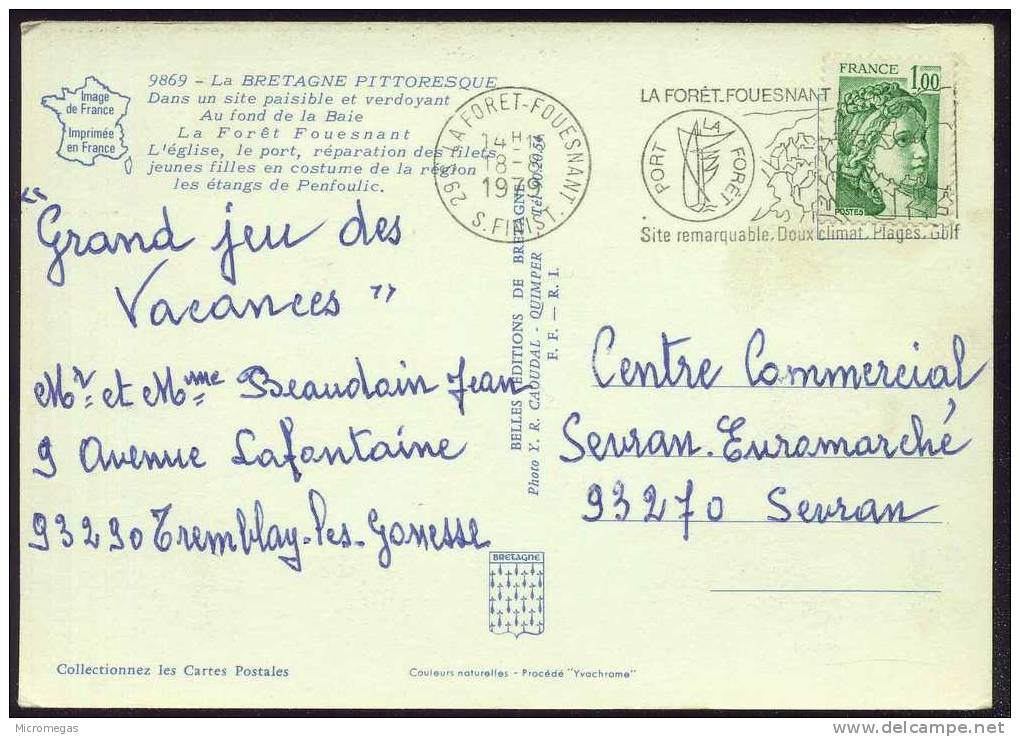 9869 - La BRETAGNE PITTORESQUE
Dans un site paisible et verdoyant
Au fond de la Baie
La Forêt Fouesnant
L'église, le port, réparation des filets,
jeunes filles en costume de la région
les étangs de Penfoulic.
Image
de France
Imprimée
en France
29 LA FORET-FOUESNANT
14 H 15
18 - 8
1979
S. FINIST.
LA FORÊT-FOUESNANT
PORT LA FORÊT
Site remarquable. Doux climat. Plages. Golf
FRANCE 1,00
POSTES
"Grand jeu des
Vacances"
Mr et Mme Beaudain Jean
9 Avenue Lafontaine
93290 Tremblay-les-Gonesse
BELLES ÉDITIONS DE BRETAGNE
Photo Y. R. CAOUDAL - QUIMPER Tél.
F. F. — R. I.
Centre Commercial
Sevran. Euromarché
93270 Sevran
BRETAGNE
Collectionnez les Cartes Postales
Couleurs naturelles - Procédé "Yvachrome"
Micromegas
delcampe.net